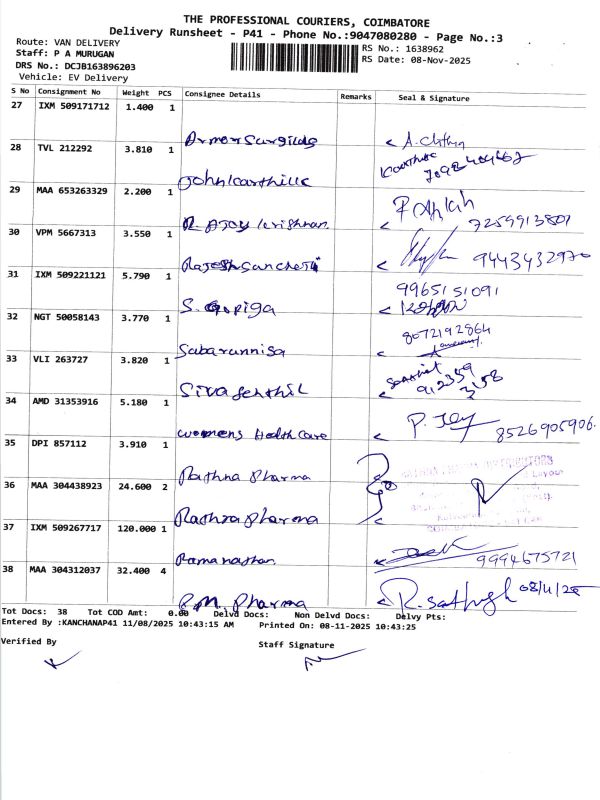 THE PROFESSIONAL COURIERS, COIMBATORE
Delivery Runsheet - P41 - Phone No.:9047080280 - Page No.:3
Route: VAN DELIVERY
Staff: P A MURUGAN
DRS No.: DCJB163896203
Vehicle: EV Delivery
RS No.: 1638962
RS Date: 08-Nov-2025
S No Consignment No Weight PCS Consignee Details Remarks Seal & Signature
27 IXM 509171712 1.400 1
A. Chithra
28 TVL 212292 3.810 1
John Karthick
29 MAA 653263329 2.200 1
R. Ajay Krishnan. 7259913801
30 VPM 5667313 3.550 1
9443432970
31 IXM 509221121 5.790 1
9965151091
S. Gopiga
32 NGT 50058143 3.770 1
8072192864
Sabarunnisa
33 VLI 263727 3.820 1
Siva Senthil
34 AMD 31353916 5.180 1
womens Health care P. Jey 8526905906.
35 DPI 857112 3.910 1
Rathna Pharma
36 MAA 304438923 24.600 2
Rathna Pharma
37 IXM 509267717 120.000 1
Ramanathan 9994675721
38 MAA 304312037 32.400 4
P.M. Pharma R. Sathish 08/11/25
Tot Docs: 38 Tot COD Amt: 0.00 Delvd Docs: Non Delvd Docs: Delvy Pts:
Entered By :KANCHANAP41 11/08/2025 10:43:15 AM Printed On: 08-11-2025 10:43:25
Verified By Staff Signature